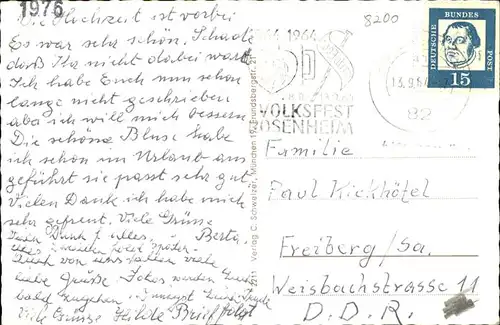 1976
Die Hochzeit ist vorbei
Es war sehr schön. Schade
daß Ihr nicht dabei wart.
Ich habe Euch nun schon
lange nicht geschrieben
aber ich will mich bessern.
Die schöne Bluse habe
ich schon im Urlaub an
geführt sie paßt sehr gut.
Vielen Dank ich habe mich
sehr gefreut. Viele Grüße
Vielen Dank f. alles, Berta.
alles
Auch von uns allen viele
liebe Grüße. Fotos werden Euch
bald zugehen.
Viele Grüße Hilde Brief folgt
8200
DEUTSCHE BUNDESPOST
15
1964
VOLKSFEST
ROSENHEIM
13.9.64
82
Verlag C. Schweitzer, München 19,
Familie
Paul Kickhöfel
Freiberg/Sa.
Weisbachstrasse 11
D.D.R.